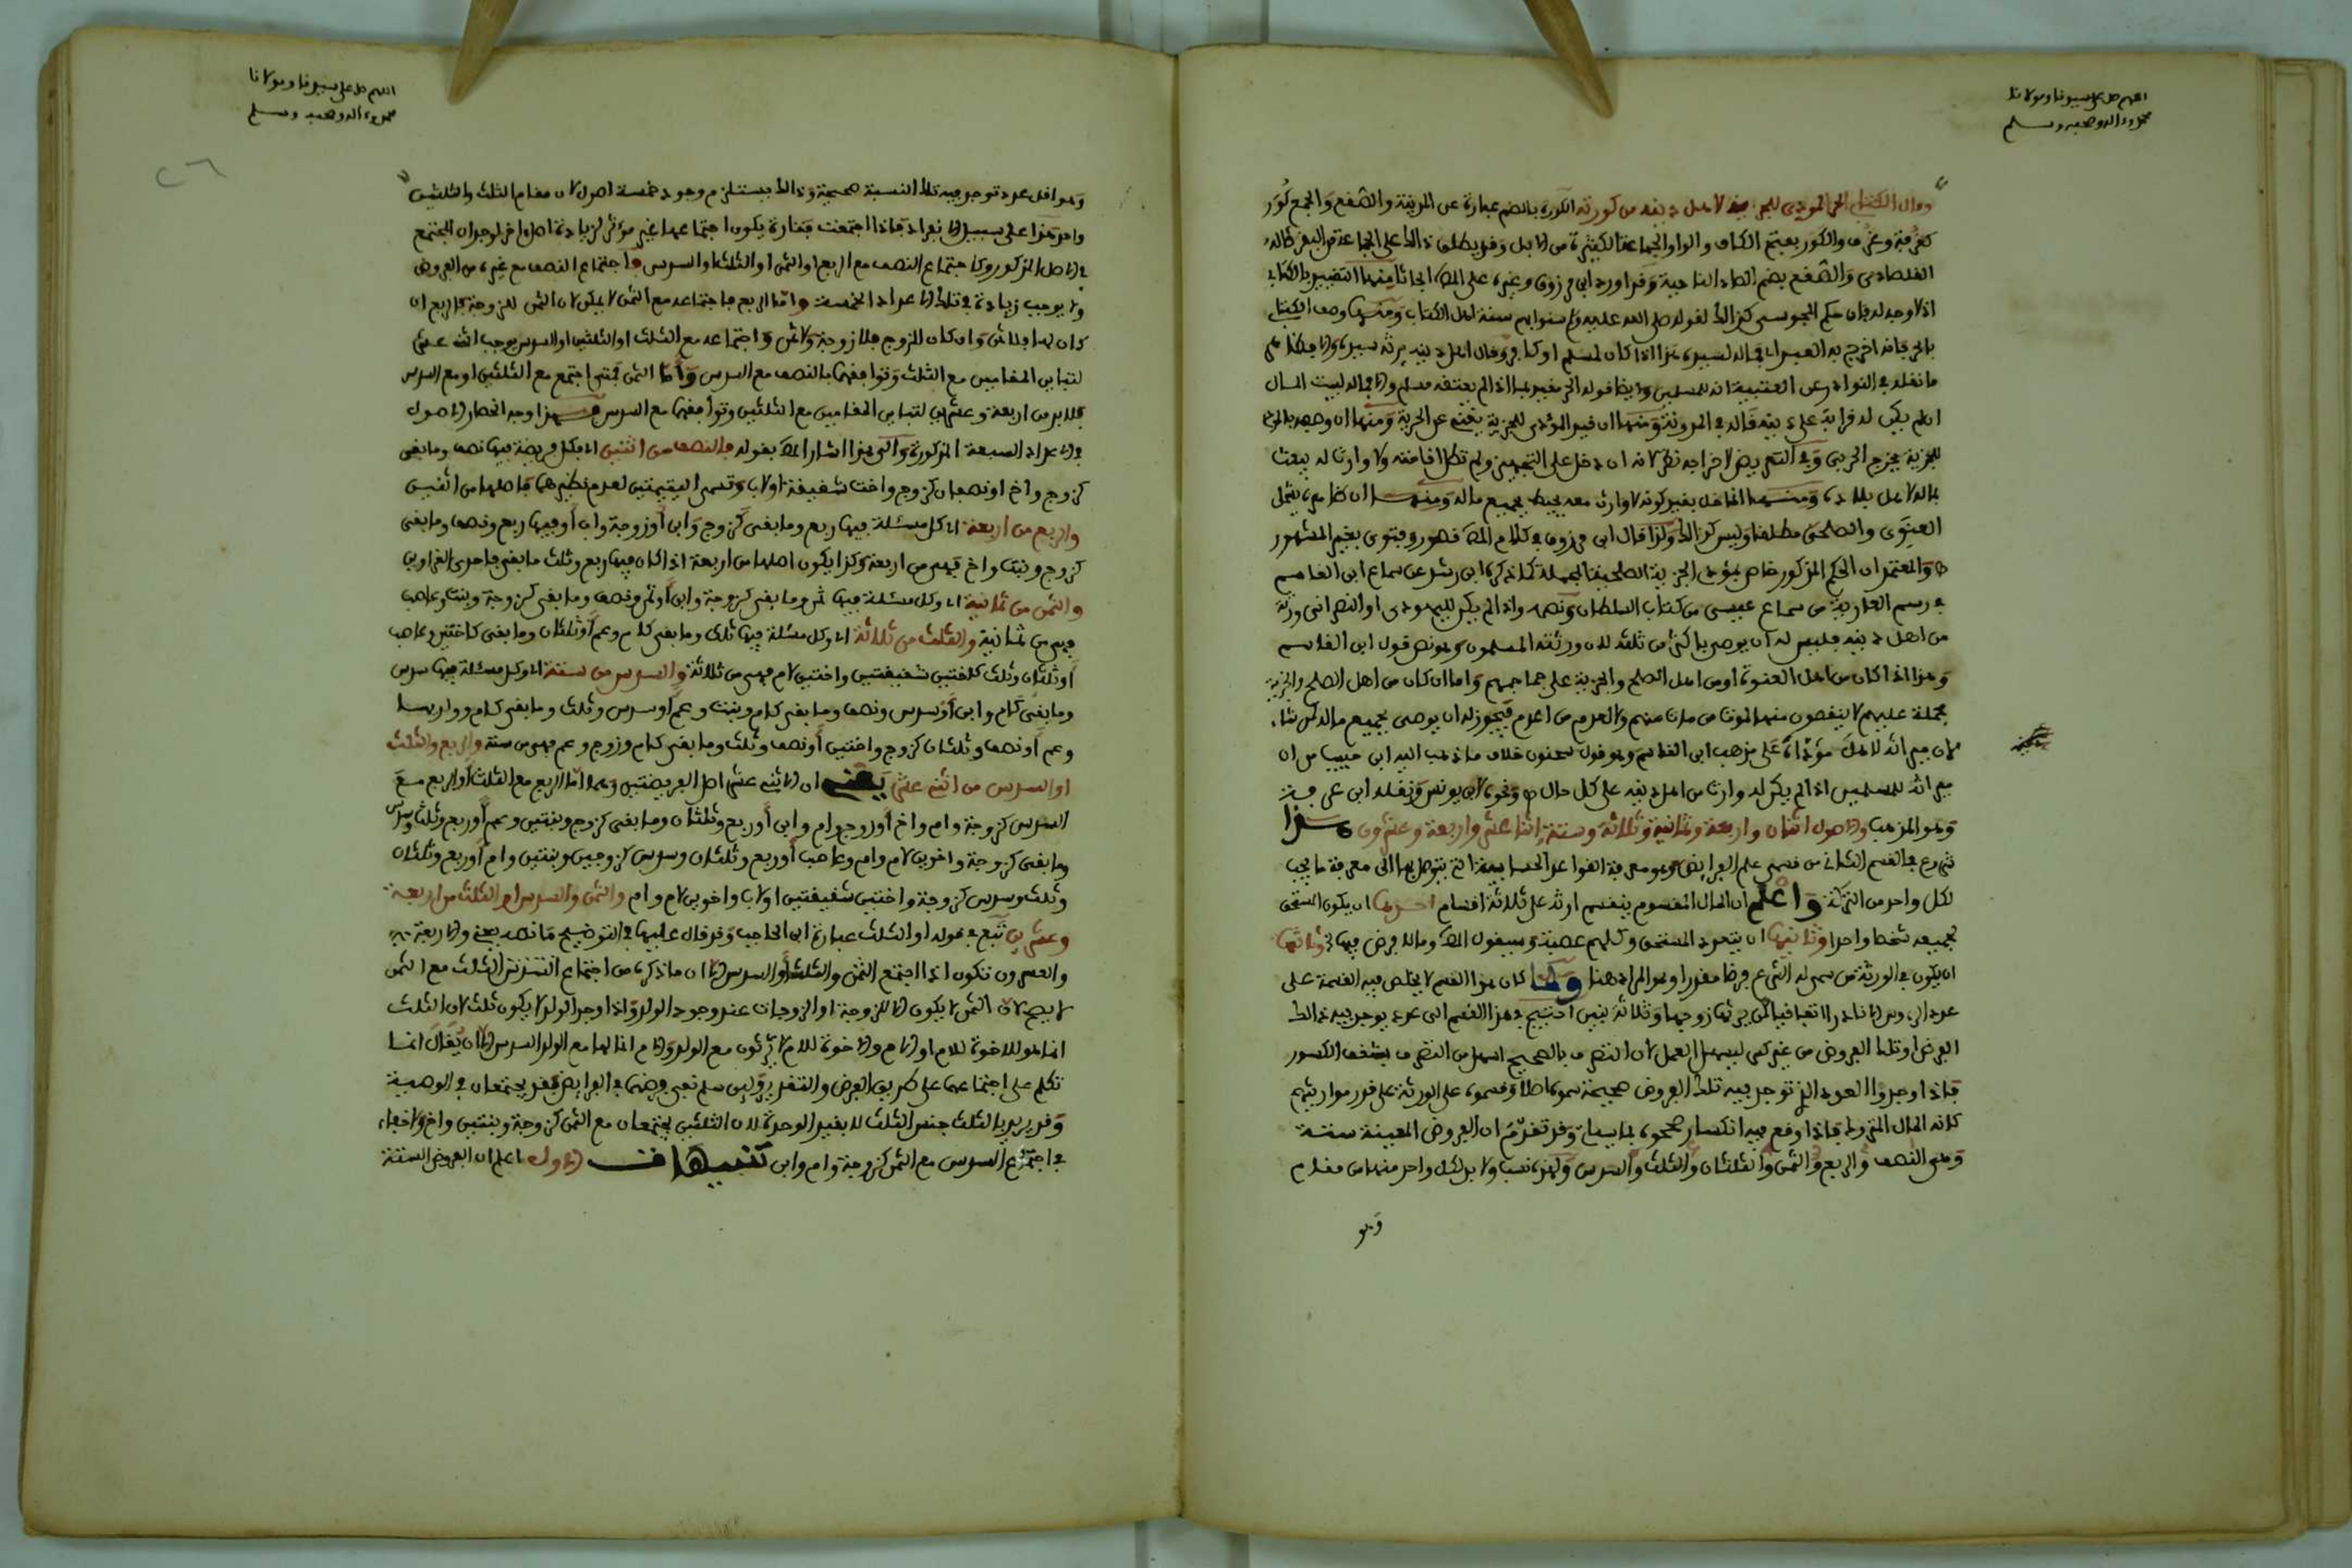 اللهم صل على سيدنا ومولانا
محمد وءاله وصحبه وسلم
ومال الكتابي الحر المودي للجزية لاهل دينه من كورته الكورة بالضم عبارة عن المدينة والصقع والجمع كور
كغرفة وغرف والكور بفتح الكاف والواو الجماعة الكثيرة من الابل وقد يطلق ذالك على الجماعة من البقر قاله
القلصادي والصقع بضم الصاد الناحية وقد اورد ابن مرزوق وغيره على المص ابحاثا منها التعبير بالكتابي
اذ لا وجه له فان حكم المجوسي كذالك لقوله صلى الله عليه وسلم سنوا بهم سنة اهل الكتاب ومنها وصف الكتابي
بالحر فانه اخرج به العبد لان ماله لسيده هذا اذا كان لمسلم او كافر وقال اهل دينه يرثه سيده
ما نقله في النوادر عن العتبية انه للمسلمين وايضا قوله الحر مقيد بما اذا لم يعتقه مسلم والا فماله لبيت المال
ان لم يكن له قرابة على دينه قاله في المدونة ومنها ان قيد المؤدي للجزية يغني عن الحرية ومنها ان وصفه بالمودي
للجزية مخرج الحربي وفي التعريض لاخراجه نظر لانه ان دخل على التجهيز ولم تطل اقامته ولا وارث له يبعث
ماله لاهل بلاده ومنها انه اخل بقيد كونه لا وارث معه يحيط بجميع ماله ومنها ان ظاهره يشمل
العنوي والصلحي مطلقا وليس كذالك ولذا قال ابن مرزوق في كلام المص قصور وفتوى بغير المشهور
والمعتمد ان الحكم المذكور خاص بمؤدي الجزية الصلحية المجملة كما ذكره ابن رشد عن سماع ابن القاسم
في رسم العارية من سماع عيسى من كتاب السلطان ونصه واذا لم يكن لليهودي او النصراني ورثة
من اهل دينه فليس له ان يوصي باكثر من ثلثه لان ورثته المسلمون وهو نص قول ابن القاسم
وهذا اذا كان من اهل العنوة او من اهل الصلح والجزية على جماجمهم واما ان كان من اهل الصلح والجزية
مجملة عليهم لا ينقصون منها لموت من مات منهم ولا لعدم من اعدم فيجوز له ان يوصي بجميع ماله لمن شاء
لان ميراثه لاهل مؤداه على مذهب ابن القاسم وهو قول سحنون خلاف ما ذهب اليه ابن حبيب من ان
ميراثه للمسلمين اذا لم يكن له وارث من اهل دينه على كل حال ونحوه لابن يونس ونقله ابن عرفة
وهو المذهب والاصول اثنان واربعة وثمانية وثلاثة وستة واثنا عشر واربعة وعشرون هذا
شروع في القسم الثاني من قسمي علم الفرايض وهو معرفة القواعد الحسابية التي يتوصل بها الى معرفة ما يجب
لكل واحد من التركة واعلم ان المال المقسوم ينقسم ارثه على ثلاثة اقسام احدها ان يكون المستحق
لجميعه شخصا واحدا وثانيها ان يتعدد المستحق وكلهم عصبة وسيقول المص وما لا فرض فيها وثالثها
ان يكون في الورثة من سمى له الشرع فرضا مقدرا وهو المراد هنا ولما كان هذا القسم لا يخلص فيه القسمة على
عدد الرءوس الا نادرا اتفاقيا كمن يرثها زوجها وثلاثة بنين احتيج في هذا القسم الى عدد يوجد فيه ذالك
الفرض او تلك الفروض من غير كسر ليسهل العمل لان التصرف بالصحيح اسهل من التصرف ببعض الكسور
فاذا وجدوا العدد الذي توجد فيه تلك الفروض صحيحة سموه اصلا وقسموه على الورثة على قدر مواريثهم
كانه المال المتروك فاذا وقع فيه انكسار صححوه بما سيات وقد تقدم ان الفروض المعينة ستة
وهي النصف والربع والثمن والثلثان والثلث والسدس ولهذه نسب ولا بد لكل واحد منها من مقام
وهو
اللهم صل على سيدنا ومولانا
محمد وءاله وصحبه وسلم
٢٦
وهو اقل عدد توجد فيه تلك النسبة صحيحة وذالك يستلزم وجود خمسة اصول لان مقام الثلث والثلثين
واحد هذا على سبيل الانفراد فاذا اجتمعت فتارة يكون اجتماعها غير مؤثر لزيادة اصل ءاخر لوجدان المجتمع
في الاصل المذكور كاجتماع النصف مع الربع او الثمن او الثلث او السدس فاجتماع النصف مع غيره من الفروض
لا يوجب زيادة في تلك الاعداد الخمسة واما الربع فاجتماعه مع الثمن لا يمكن لان الثمن للزوجة فالربع ان
كان لها فلا ثمن وان كان للزوج فلا زوجة ولا ثمن واجتماعه مع الثلث او الثلثين او السدس يوجب اثنى عشر
لتباين المقامين مع الثلث وتوافقهما بالنصف مع السدس واما الثمن فمتى اجتمع مع الثلثين او مع السدس
فلا بد من اربعة وعشرين لتباين المقامين مع الثلثين وتوافقهما مع السدس فهذا وجه انحصار الاصول
في الاعداد السبعة المذكورة والى هذا اشار المص بقوله فالنصف من اثنين اي فكل فريضة فيها نصف وما بقي
كزوج واخ او نصفان كزوج واخت شقيقة او لاب وتسمى اليتيمتين لعدم نظيرهما فاصلها من اثنين
والربع من اربعة اي كل مسئلة فيها ربع وما بقي كزوج وابن او زوجة واب او فيها ربع ونصف وما بقي
كزوج وبنت واخ فهي من اربعة وكذا يكون اصلها من اربعة اذا كان فيها ربع وثلث ما بقي فاحدى الغراوين
والثمن من ثمانية اي وكل مسئلة فيها ثمن وما بقي كزوجة وابن او ثمن ونصف وما بقي كزوجة وبنت وعاصب
فهي من ثمانية والثلث من ثلاثة اي وكل مسئلة فيها ثلث وما بقي كام وعم او ثلثان وما بقي كاختين وعاصب
او ثلثان وثلث كاختين شقيقتين واختين لام فهي من ثلاثة والسدس من ستة اي وكل مسئلة فيها سدس
وما بقي كام وابن او سدس ونصف وما بقي كام وبنت وعم او سدس وثلث وما بقي كام وولديها
وعم او نصف وثلثان كزوج واختين او نصف وثلث وما بقي كام وزوج وعم فهي من ستة والربع والثلث
او السدس من اثنى عشر يعني ان الاثني عشر اصل الفريضتين وهما اما الربع مع الثلث او الربع مع
السدس كزوجة وام واخ او زوج وام وابن او ربع وثلثان وما بقي كزوج وبنتين وعم او ربع وثلث وسدس
وما بقي كزوجة واخوين لام وام وعاصب او ربع وثلثان وسدس كزوج وبنتين وام او ربع وثلثان
وثلث وسدس كزوجة واختين شقيقتين او لاب واخوين لام وام والثمن والسدس او الثلث من اربعة
وعشرين تبع في قوله او الثلث عبارة ابن الحاجب وقد قال عليها في التوضيح ما نصه يعني والاربعة
والعشرون تكون اذا اجتمع الثمن والثلث او السدس الا ان ما ذكره من اجتماع الثلث مع الثمن
لا يصح لان الثمن لا يكون الا للزوجة او الزوجات عند وجود الولد واذا وجد الولد لا يكون ثلث لان الثلث
انما هو للاخوة للام او الام والاخوة للام لا يرثون مع الولد والام انما لها مع الولد السدس الا ان يقال انما
تكلم على اجتماعهما على طريق الفرض والتقدير ولئن سلم نفي فرضهما في الفرايض فقد يجتمعان في الوصية
وقد يريد بالثلث جنس الثلث لا بقيد الوحدة لان الثلثين يجتمعان مع الثمن كزوجة وبنتين واخ لا خفاء
في اجتماع السدس مع الثمن كزوجة وام وابن تنبيهات الاول اعلم ان الفروض الستة